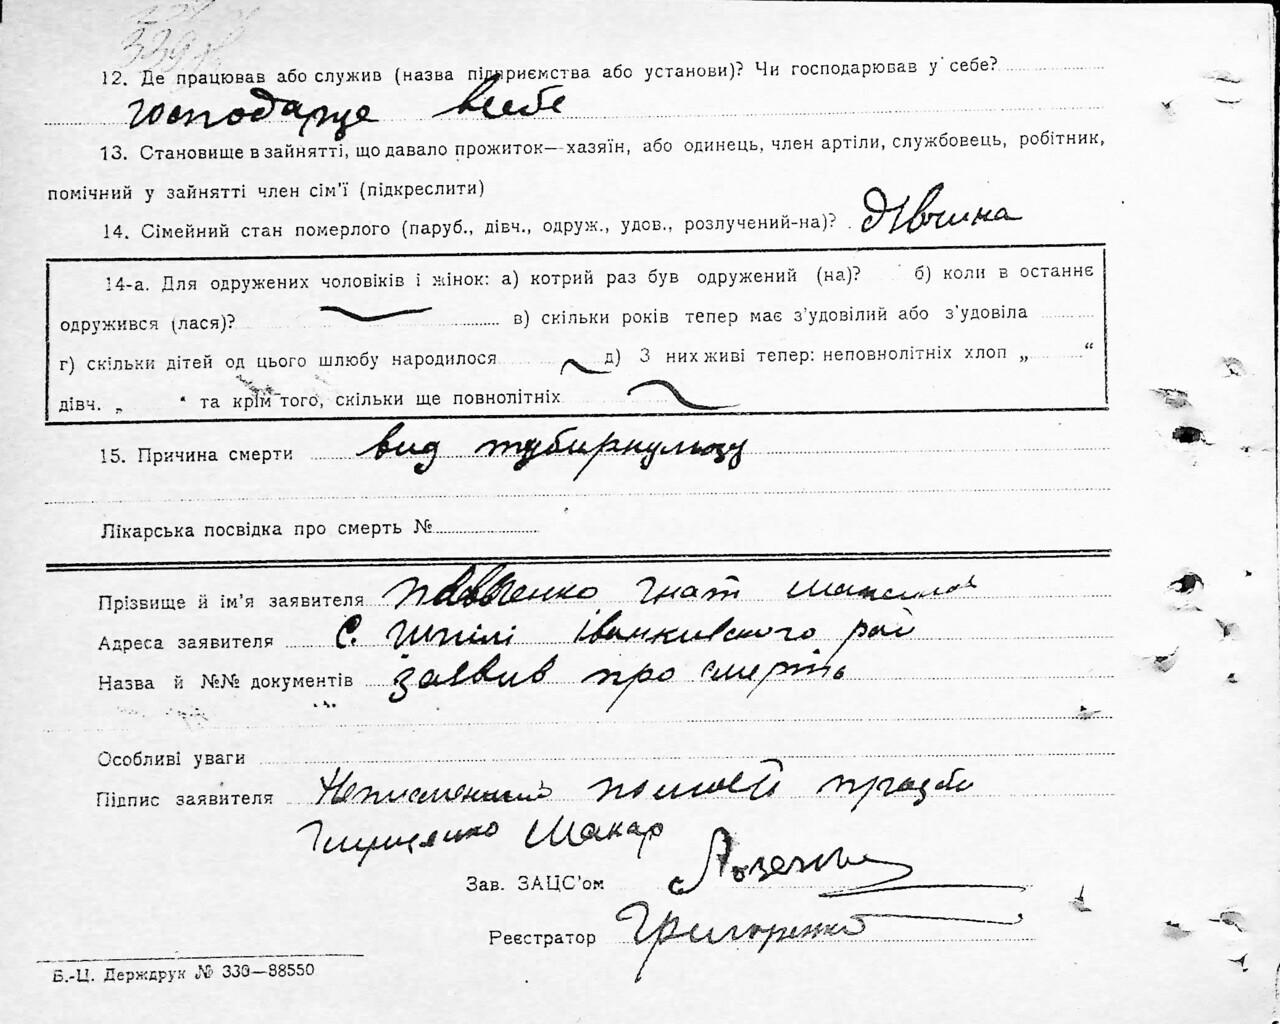 12. Де працював або служив (назва підприємства або установи)? Чи господарював у себе?
господарце всебе
13. Становище в зайнятті, що давало прожиток—хазяїн, або одинець, член артіли, службовець, робітник,
помічний у зайнятті член сім'ї (підкреслити)
14. Сімейний стан померлого (паруб., дівч., одруж., удов., розлучений-на)? дівчина
14-а. Для одружених чоловіків і жінок: а) котрий раз був одружений (на)? б) коли в останнє
одружився (лася)? в) скільки років тепер має з'удовілий або з'удовіла
г) скільки дітей од цього шлюбу народилося д) З них живі тепер: неповнолітніх хлоп „ “
дівч. „ “ та крім того, скільки ще повнолітніх
15. Причина смерти вид тубиркульозу
Лікарська посвідка про смерть №
Прізвище й ім'я заявителя Гнат
Адреса заявителя С. Шпілі Іванкивского рай
Назва й №№ документів заявив про смерть
Особливі уваги
Підпис заявителя Неписменний
Макар
Зав. ЗАЦС'ом
Реєстратор Григоренко
Б.-Ц. Держдрук № 330—88550